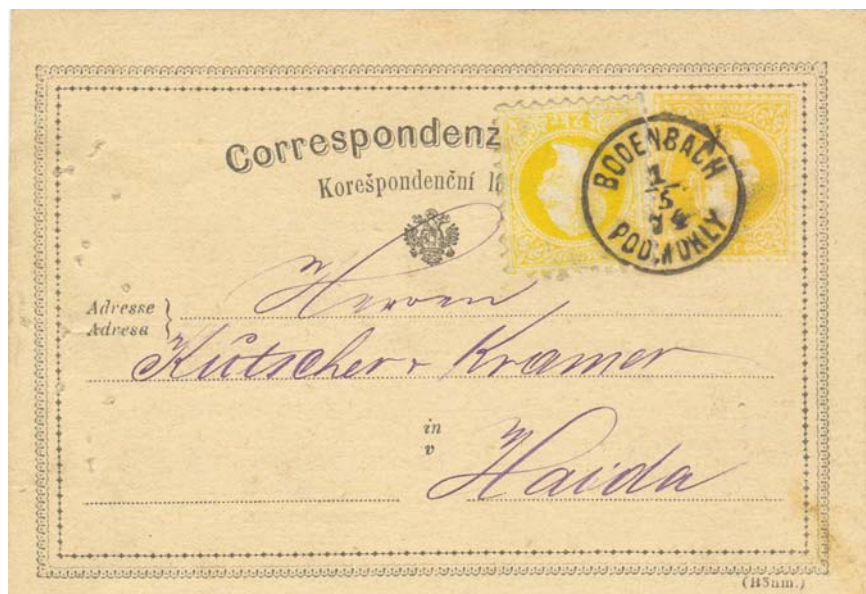 Correspondenz
Korešpondenční
BODENBACH
PODMOKLY
Herren
Adresse
Adresa
Kutscher & Kramer
in
v
Haida
(Böhm.)